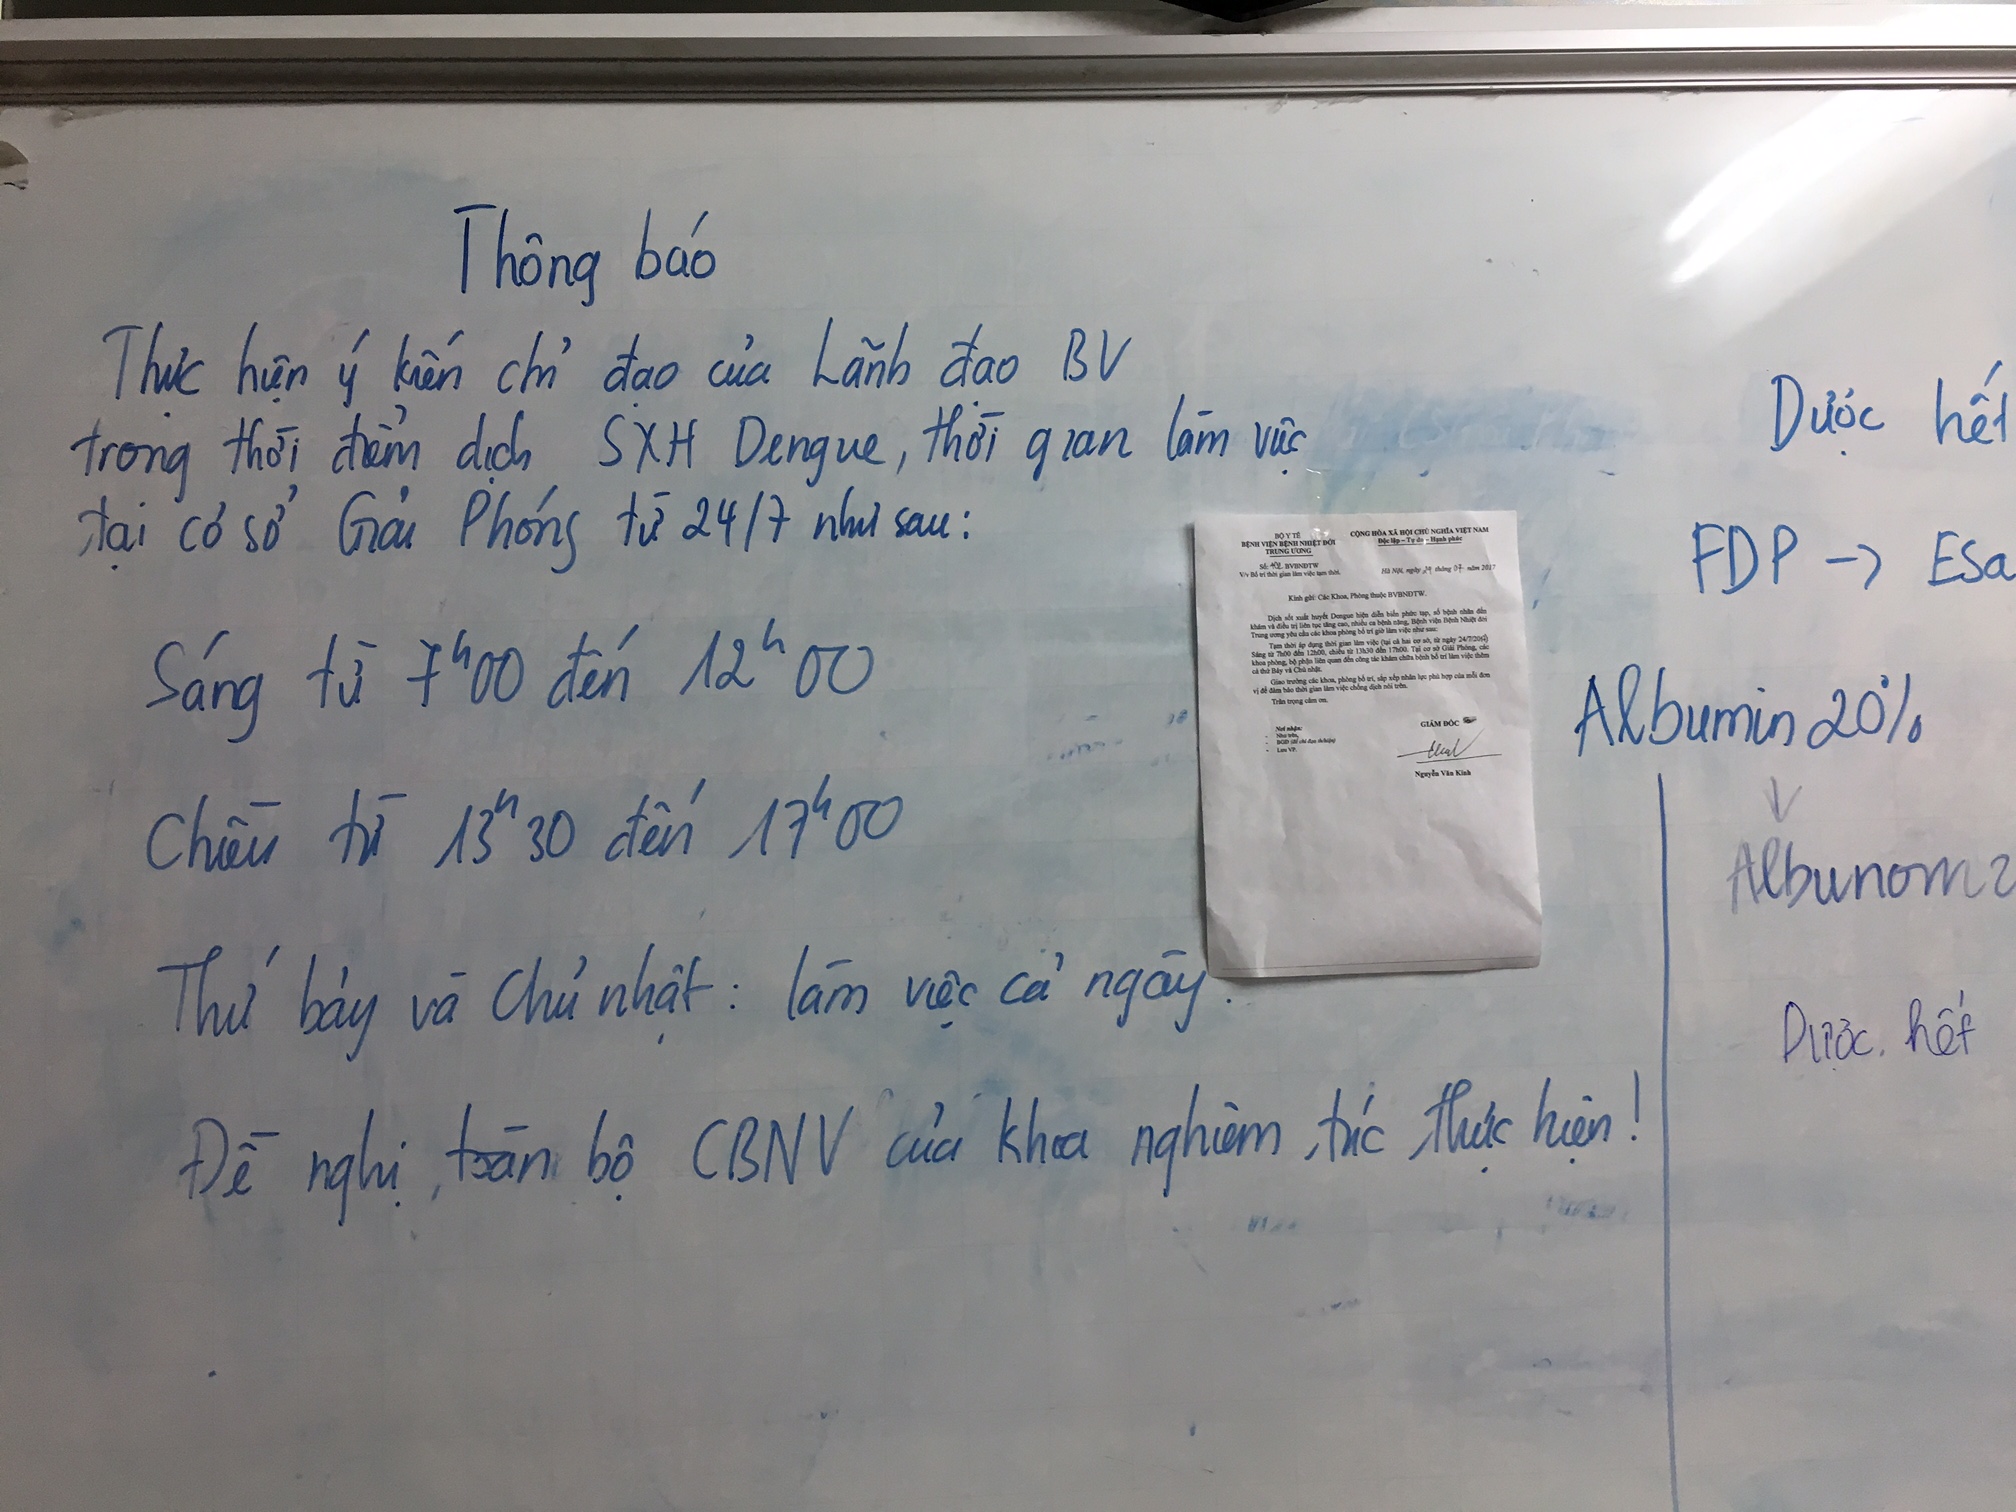 Thông báo
Thực hiện ý kiến chỉ đạo của Lãnh đạo BV
trong thời điểm dịch SXH Dengue, thời gian làm việc
tại cơ sở Giải Phóng từ 24/7 như sau:
Sáng từ 7h00 đến 12h00
Chiều từ 13h30 đến 17h00
Thứ bảy và Chủ nhật: làm việc cả ngày.
Đề nghị toàn bộ CBNV của khoa nghiêm túc thực hiện!
BỘ Y TẾ
BỆNH VIỆN BỆNH NHIỆT ĐỚI
TRUNG ƯƠNG
Số: BVBNĐTW
V/v Bố trí thời gian làm việc tạm thời.
CỘNG HÒA XÃ HỘI CHỦ NGHĨA VIỆT NAM
Độc lập – Tự do – Hạnh phúc
Hà Nội, ngày 24 tháng 07 năm 2017
Kính gửi: Các Khoa, Phòng thuộc BVBNĐTW.
Dịch sốt xuất huyết Dengue hiện diễn biến phức tạp, số bệnh nhân đến
khám và điều trị liên tục tăng cao, nhiều ca bệnh nặng, Bệnh viện Bệnh Nhiệt đới
Trung ương yêu cầu các khoa phòng bố trí giờ làm việc như sau:
Tạm thời áp dụng thời gian làm việc (tại cả hai cơ sở, từ ngày 24/7/2017)
Sáng từ 7h00 đến 12h00, chiều từ 13h30 đến 17h00. Tại cơ sở Giải Phóng, các
khoa phòng, bộ phận liên quan đến công tác khám chữa bệnh bố trí làm việc thêm
cả thứ Bảy và Chủ nhật.
Giao trưởng các khoa, phòng bố trí, sắp xếp nhân lực phù hợp của mỗi đơn
vị để đảm bảo thời gian làm việc chống dịch nói trên.
Trân trọng cảm ơn.
Nơi nhận:
- Như trên,
- BGĐ (để chỉ đạo
- Lưu VP.
GIÁM ĐỐC
Nguyễn Văn Kính
Dược hết
FDP → Esa
Albumin 20%
Albunorm 2
Dược. hết